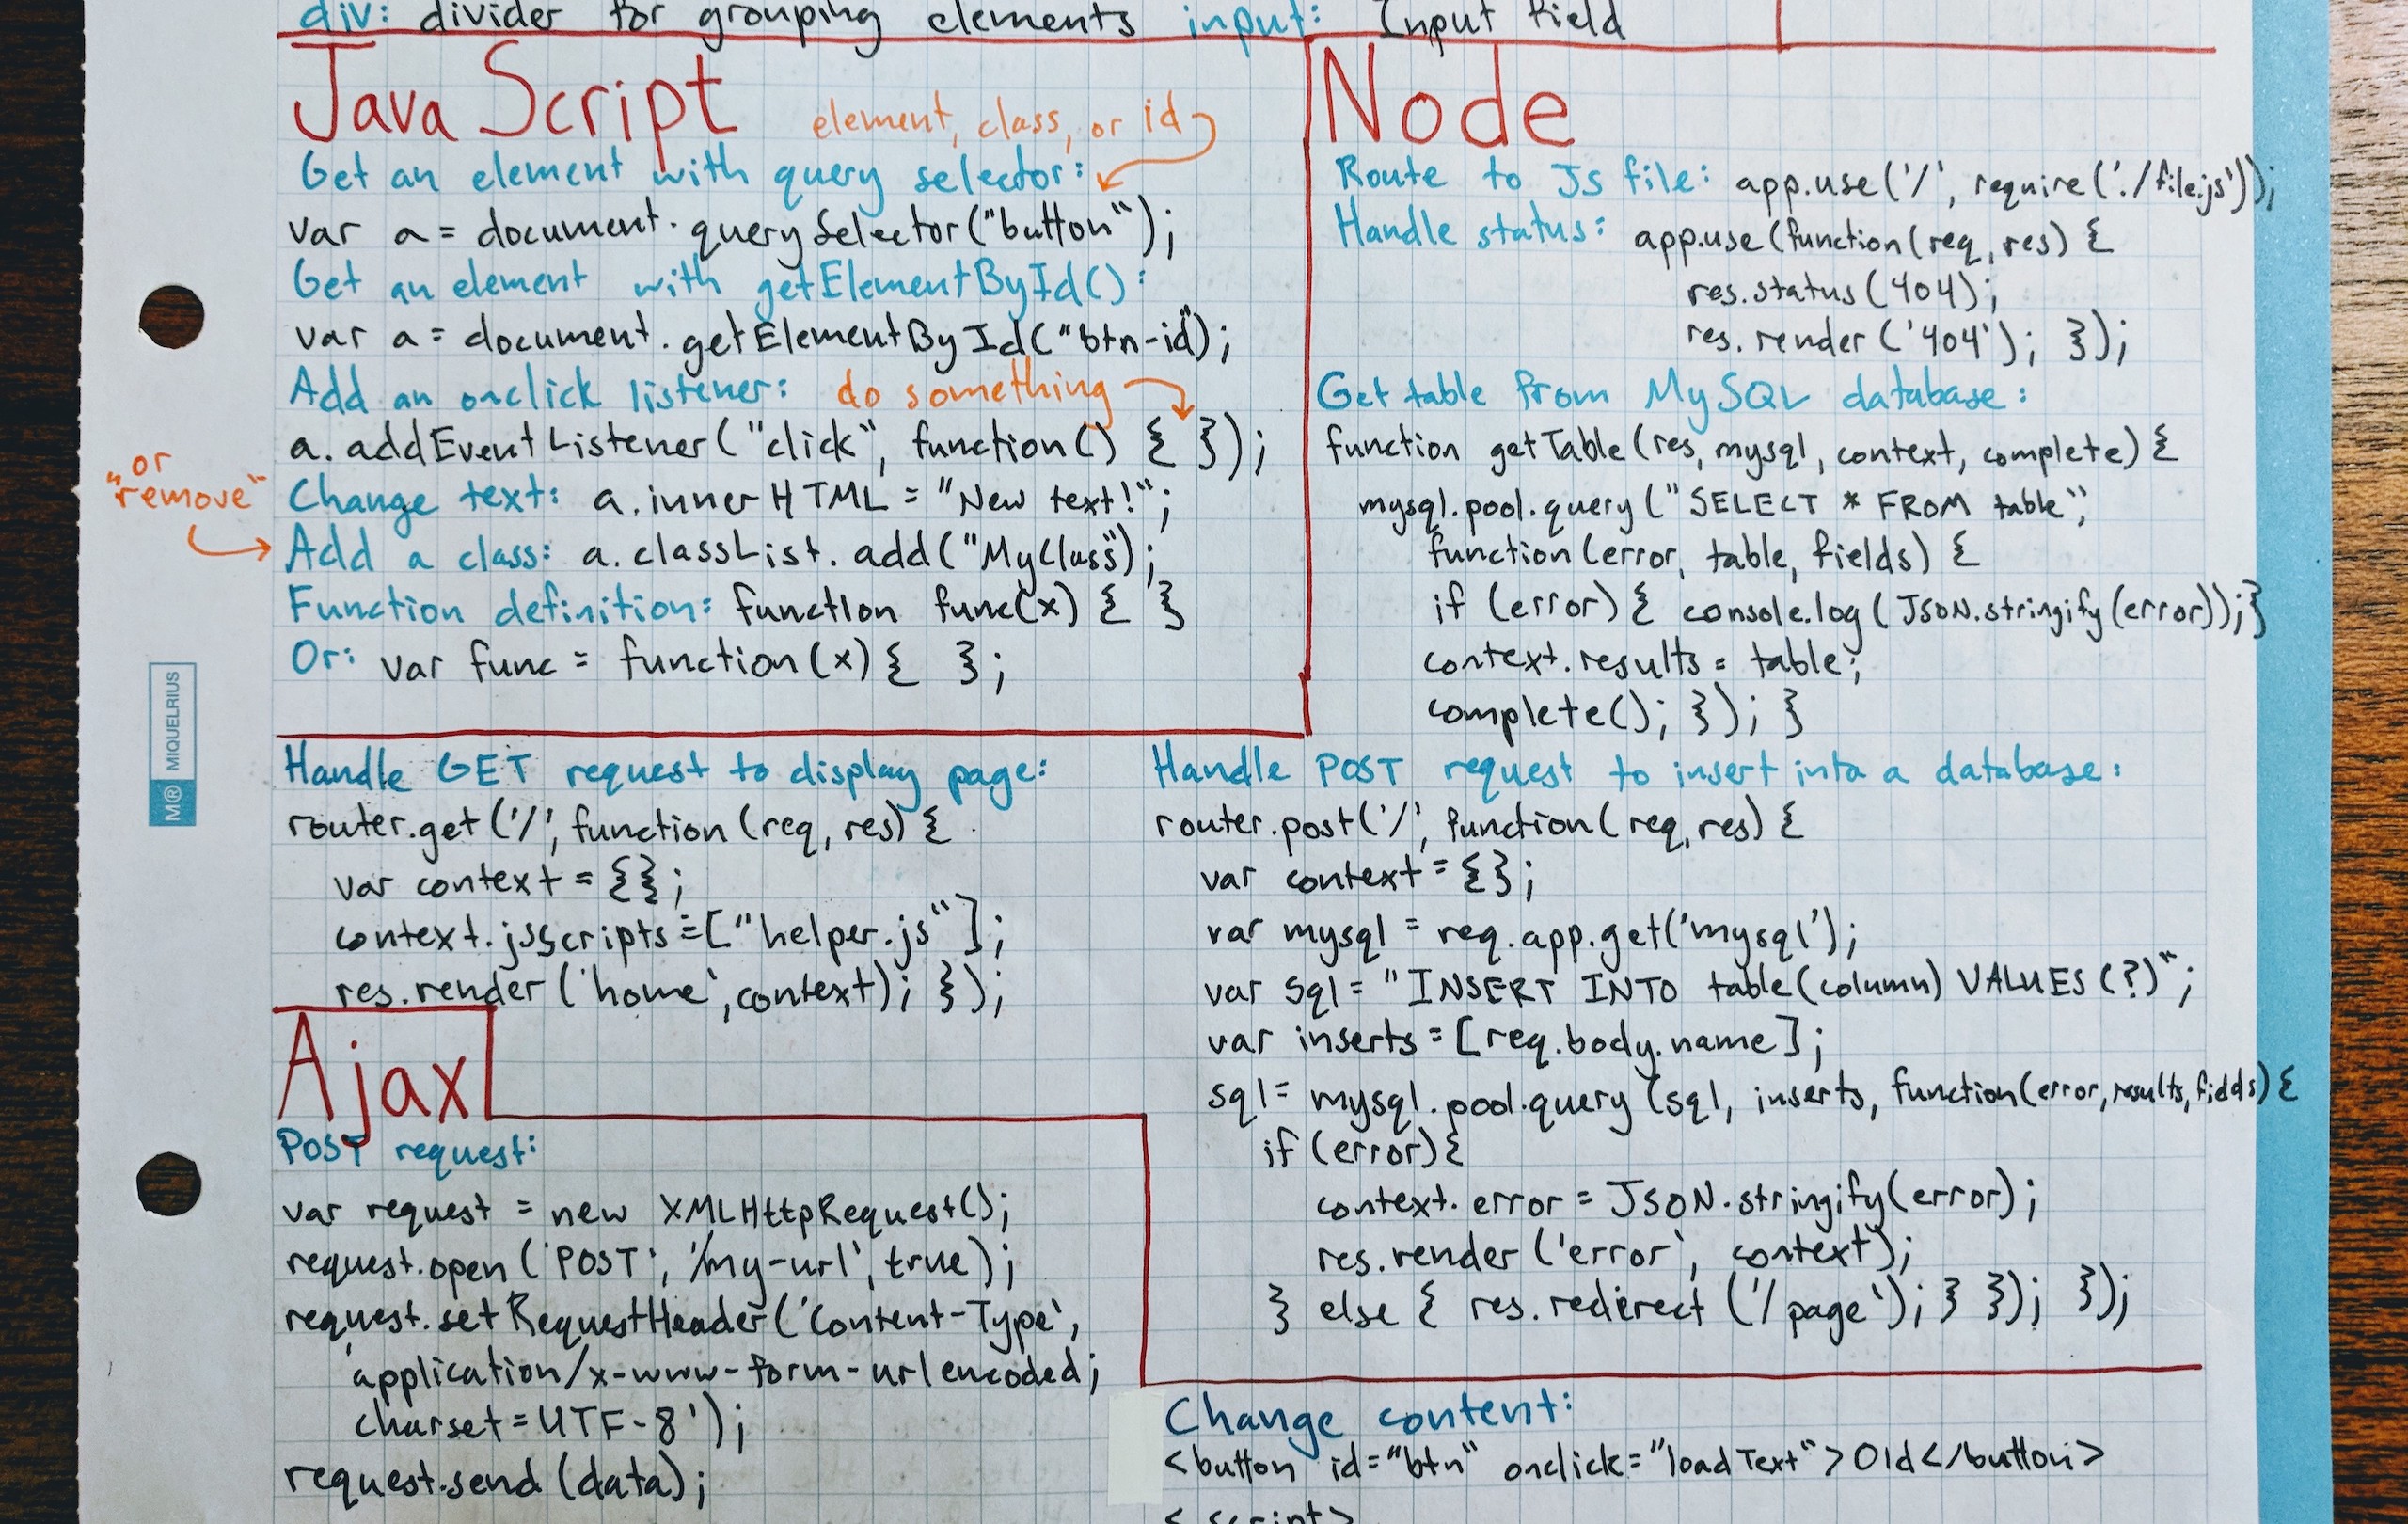 div: divider for grouping elements input: Input field
JavaScript
element, class, or id
Get an element with query selector:
var a = document.querySelector("button");
Get an element with getElementById():
var a = document.getElementById("btn-id");
Add an onclick listener: do something
a.addEventListener("click", function() { });
"or remove"
Change text: a.innerHTML = "New text!";
Add a class: a.classList.add("MyClass");
Function definition: function func(x) { }
Or: var func = function(x) { };
Node
Route to JS file: app.use('/', require('./file.js'));
Handle status: app.use(function(req, res) {
res.status(404);
res.render('404'); });
Get table from MySQL database:
function getTable(res, mysql, context, complete) {
mysql.pool.query("SELECT * FROM table",
function(error, table, fields) {
if (error) { console.log(JSON.stringify(error)); }
context.results = table;
complete(); }); }
Handle GET request to display page:
router.get('/', function(req, res) {
var context = {};
context.jsscripts = ["helper.js"];
res.render('home', context); });
Handle POST request to insert into a database:
router.post('/', function(req, res) {
var context = {};
var mysql = req.app.get('mysql');
var sql = "INSERT INTO table(column) VALUES (?)";
var inserts = [req.body.name];
sql = mysql.pool.query(sql, inserts, function(error, results, fields) {
if (error) {
context.error = JSON.stringify(error);
res.render('error', context);
} else { res.redirect('/page'); } }); });
MIQUELRIUS
M®
Ajax
POST request:
var request = new XMLHttpRequest();
request.open('POST', '/my-url', true);
request.setRequestHeader('Content-Type',
'application/x-www-form-urlencoded;
charset=UTF-8');
request.send(data);
Change content:
<button id="btn" onclick="loadText">Old</button>
<script>